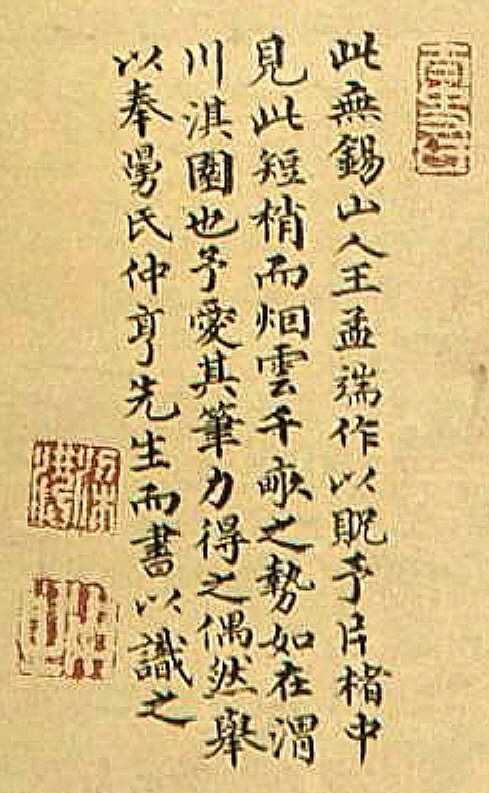 此無錫山人王孟端作以貺予片楮中
見此短梢而烟雲千畝之勢如在渭
川淇園也予愛其筆力得之偶然舉
以奉舅氏仲亨先生而書以識之